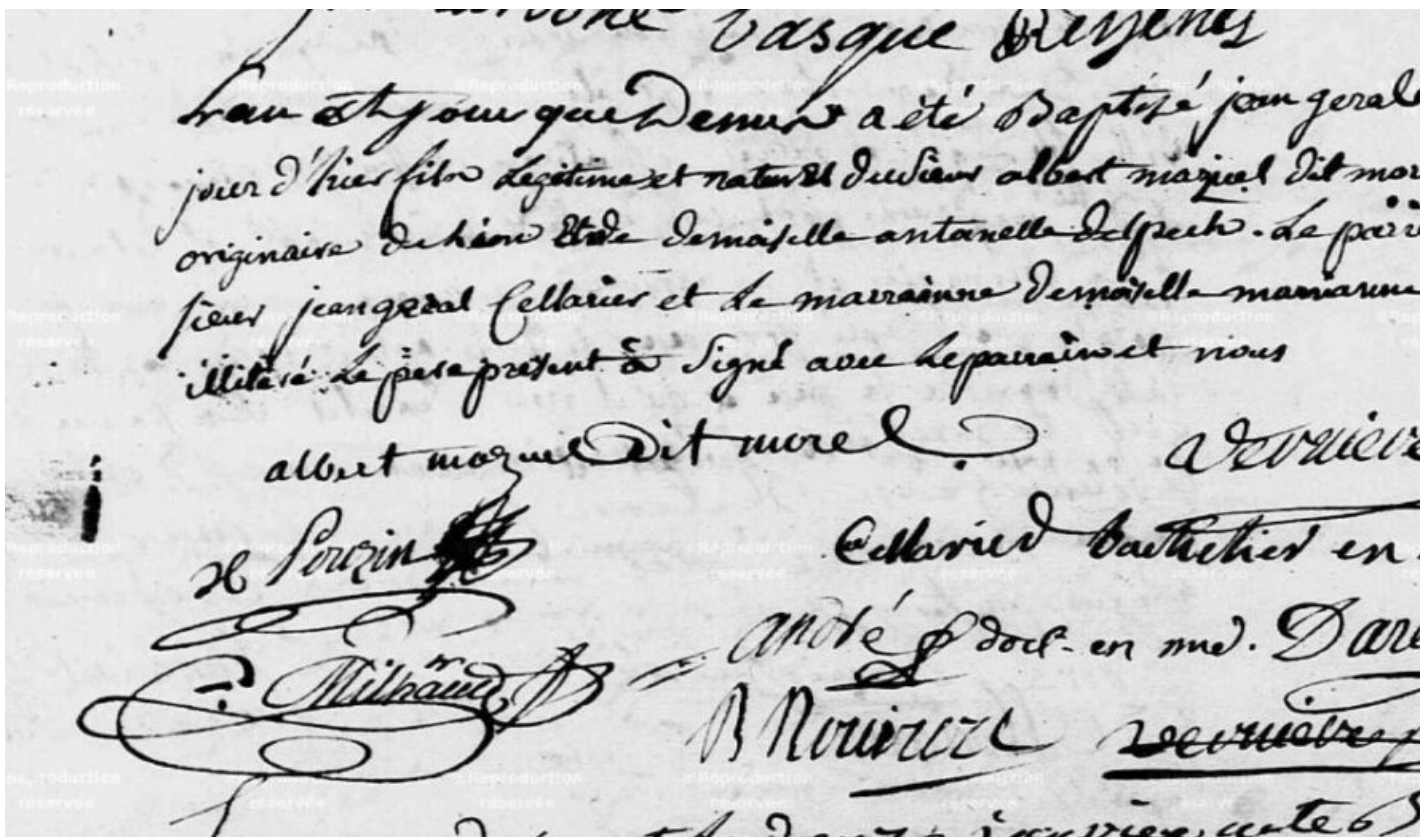 Vasque
L'an et jour que dessus a été Baptisé jean geral
jour d'hier fils Legitime et naturel du sieur albert mazuel dit mor
originaire de et de demoiselle antoinette Delpech. Le parr
sieur jean geral Cellarier et la marrainne demoiselle marianne
illiteré le pere présent a signé avec le parrain et nous
albert mazuel dit morel Verniere
Pouzin Cellarier bachelier en
andré doct. en med. Dar
Milhaud
B Rouviere Verniere
janvier acte